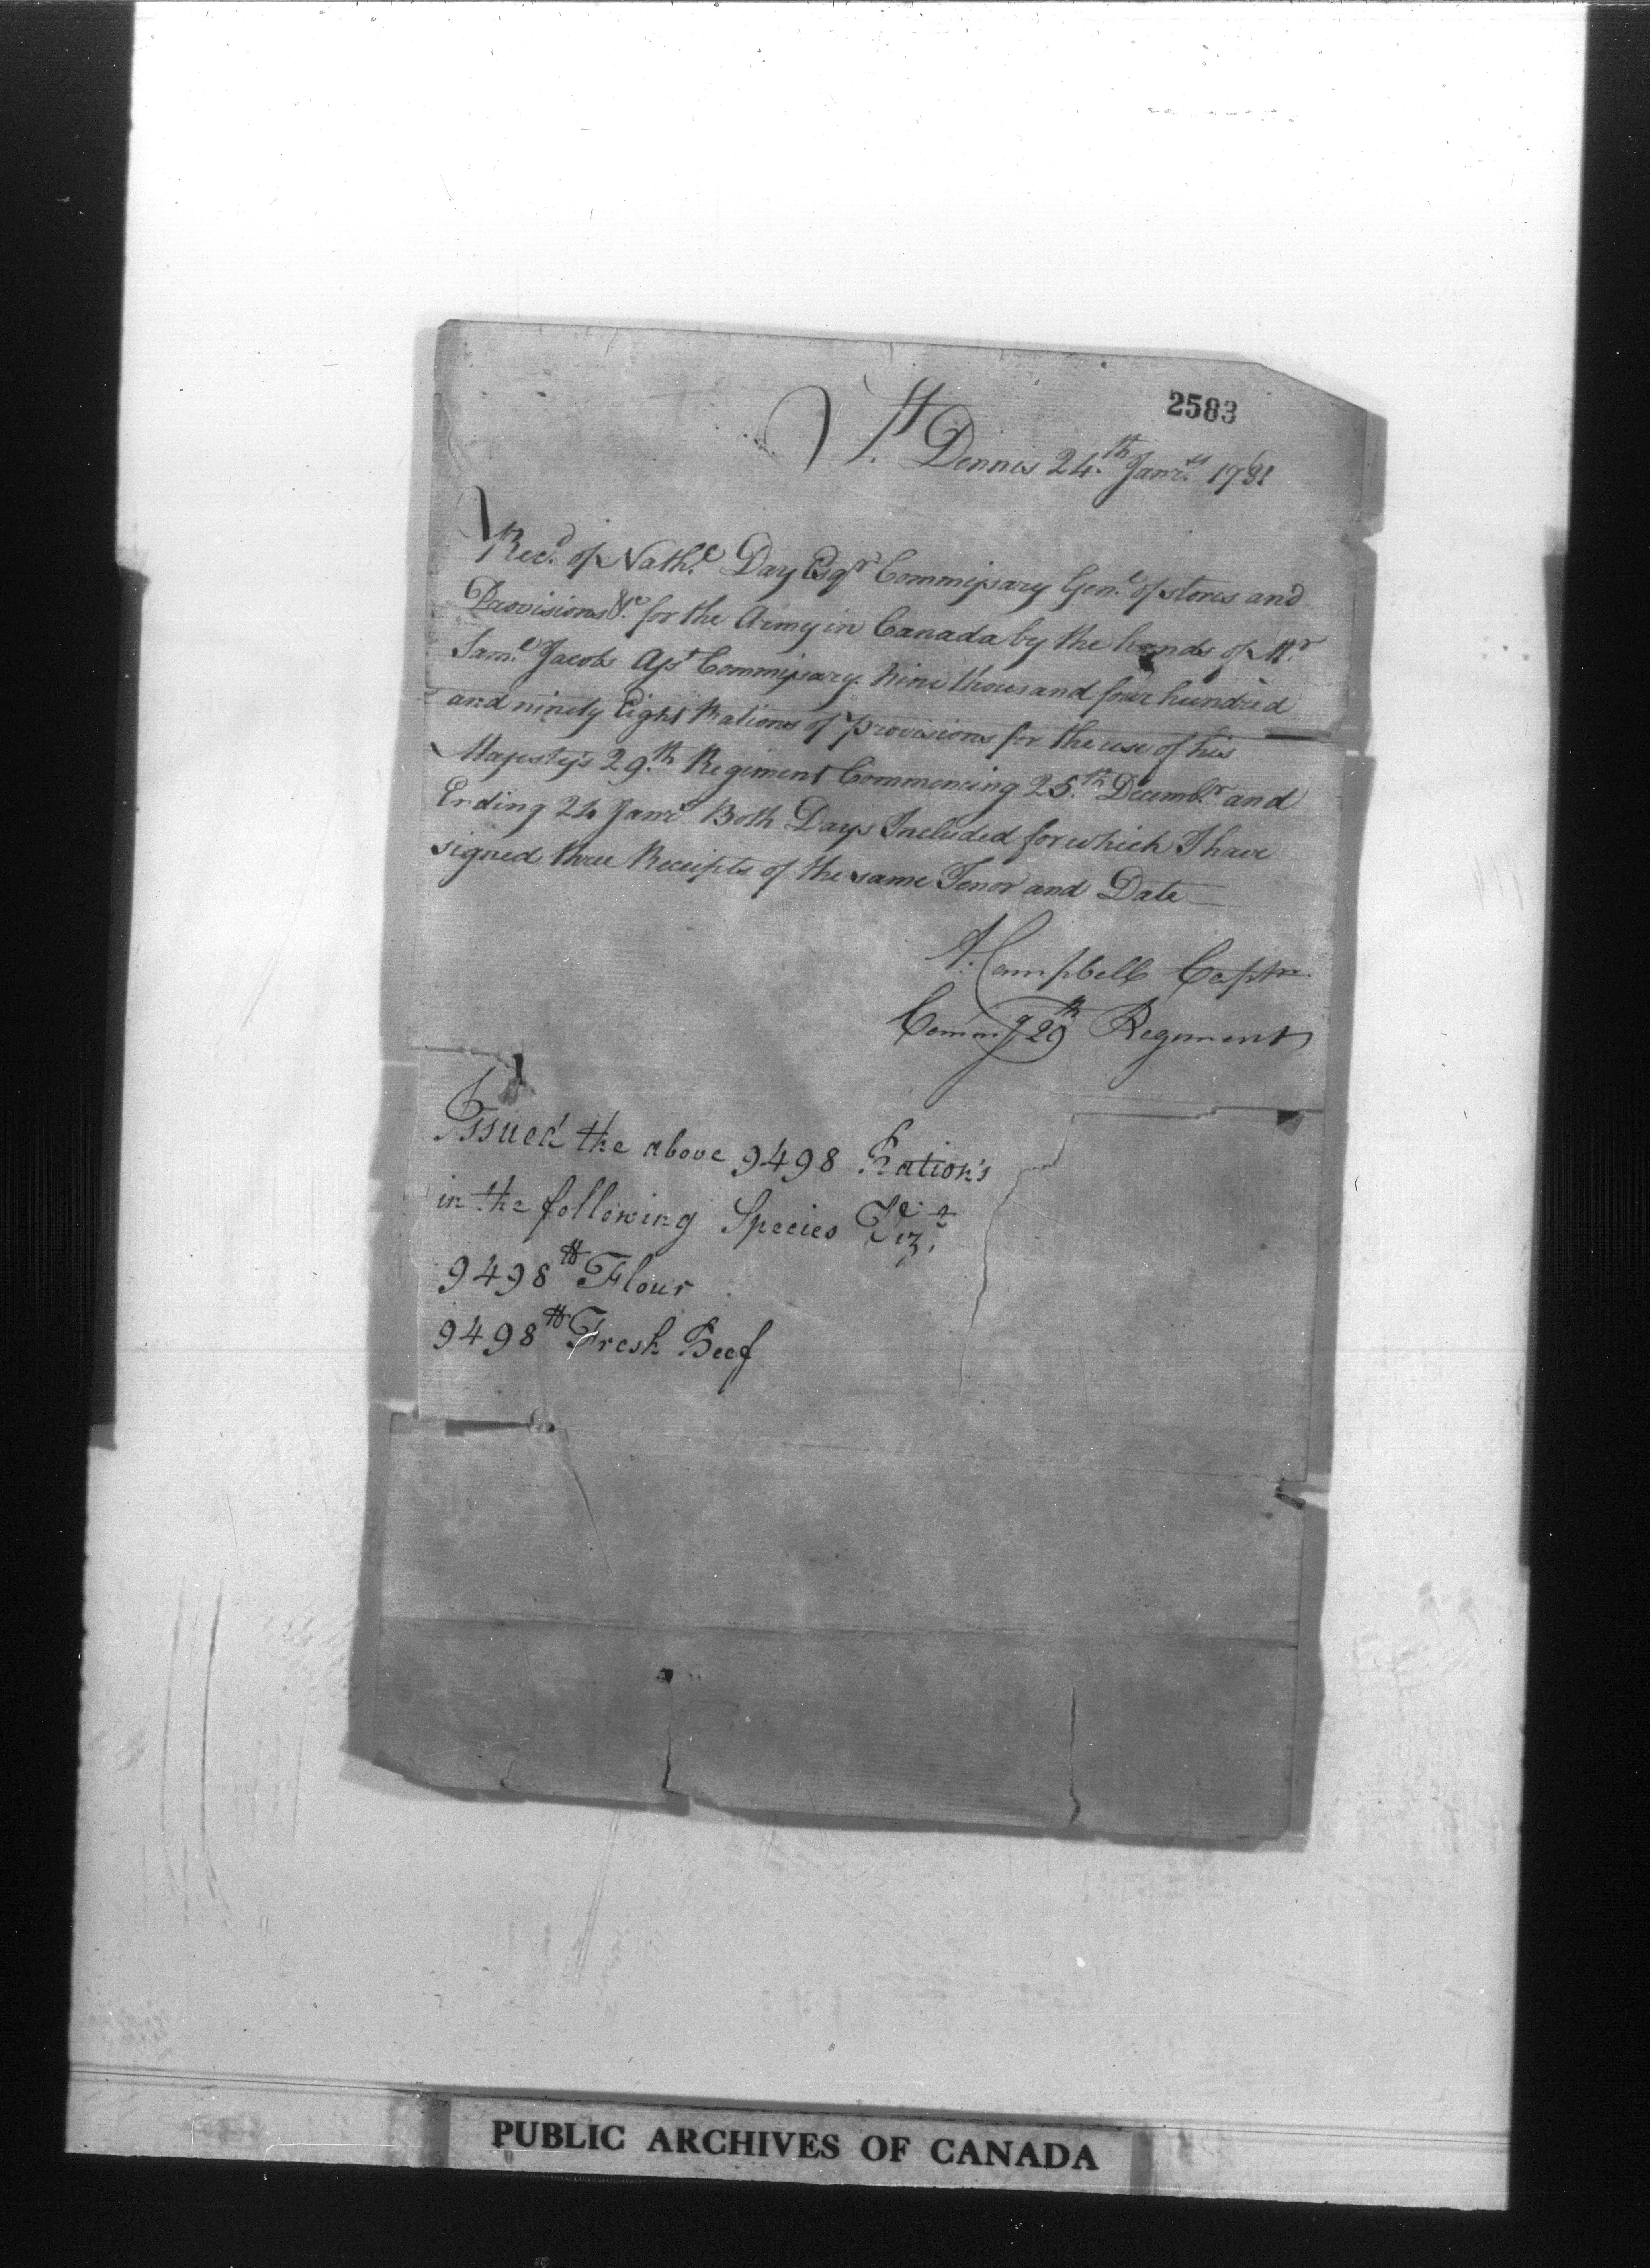 2583
St. Dennis 24.th Janry. 1781
Rec.d of Nath.l Day Esqr Commissary Gen.l of stores and
Provisions &c for the Army in Canada by the hands of Mr.
Sam.l Jacobs Ast Commissary. Nine thousand four hundred
and ninety Eight Rations of provisions for the use of his
Majesty's 29.th Regiment Commencing 25.th Decembr. and
Ending 24 Janry Both Days Included for which I have
signed three Receipts of the same Tenor and Date
A. Campbell Captn
Comm.g 29th Regiment
Issued the above 9498 Ration's
in the following Species Viz.
9498 ℔ Flour
9498 ℔ Fresh Beef
PUBLIC ARCHIVES OF CANADA